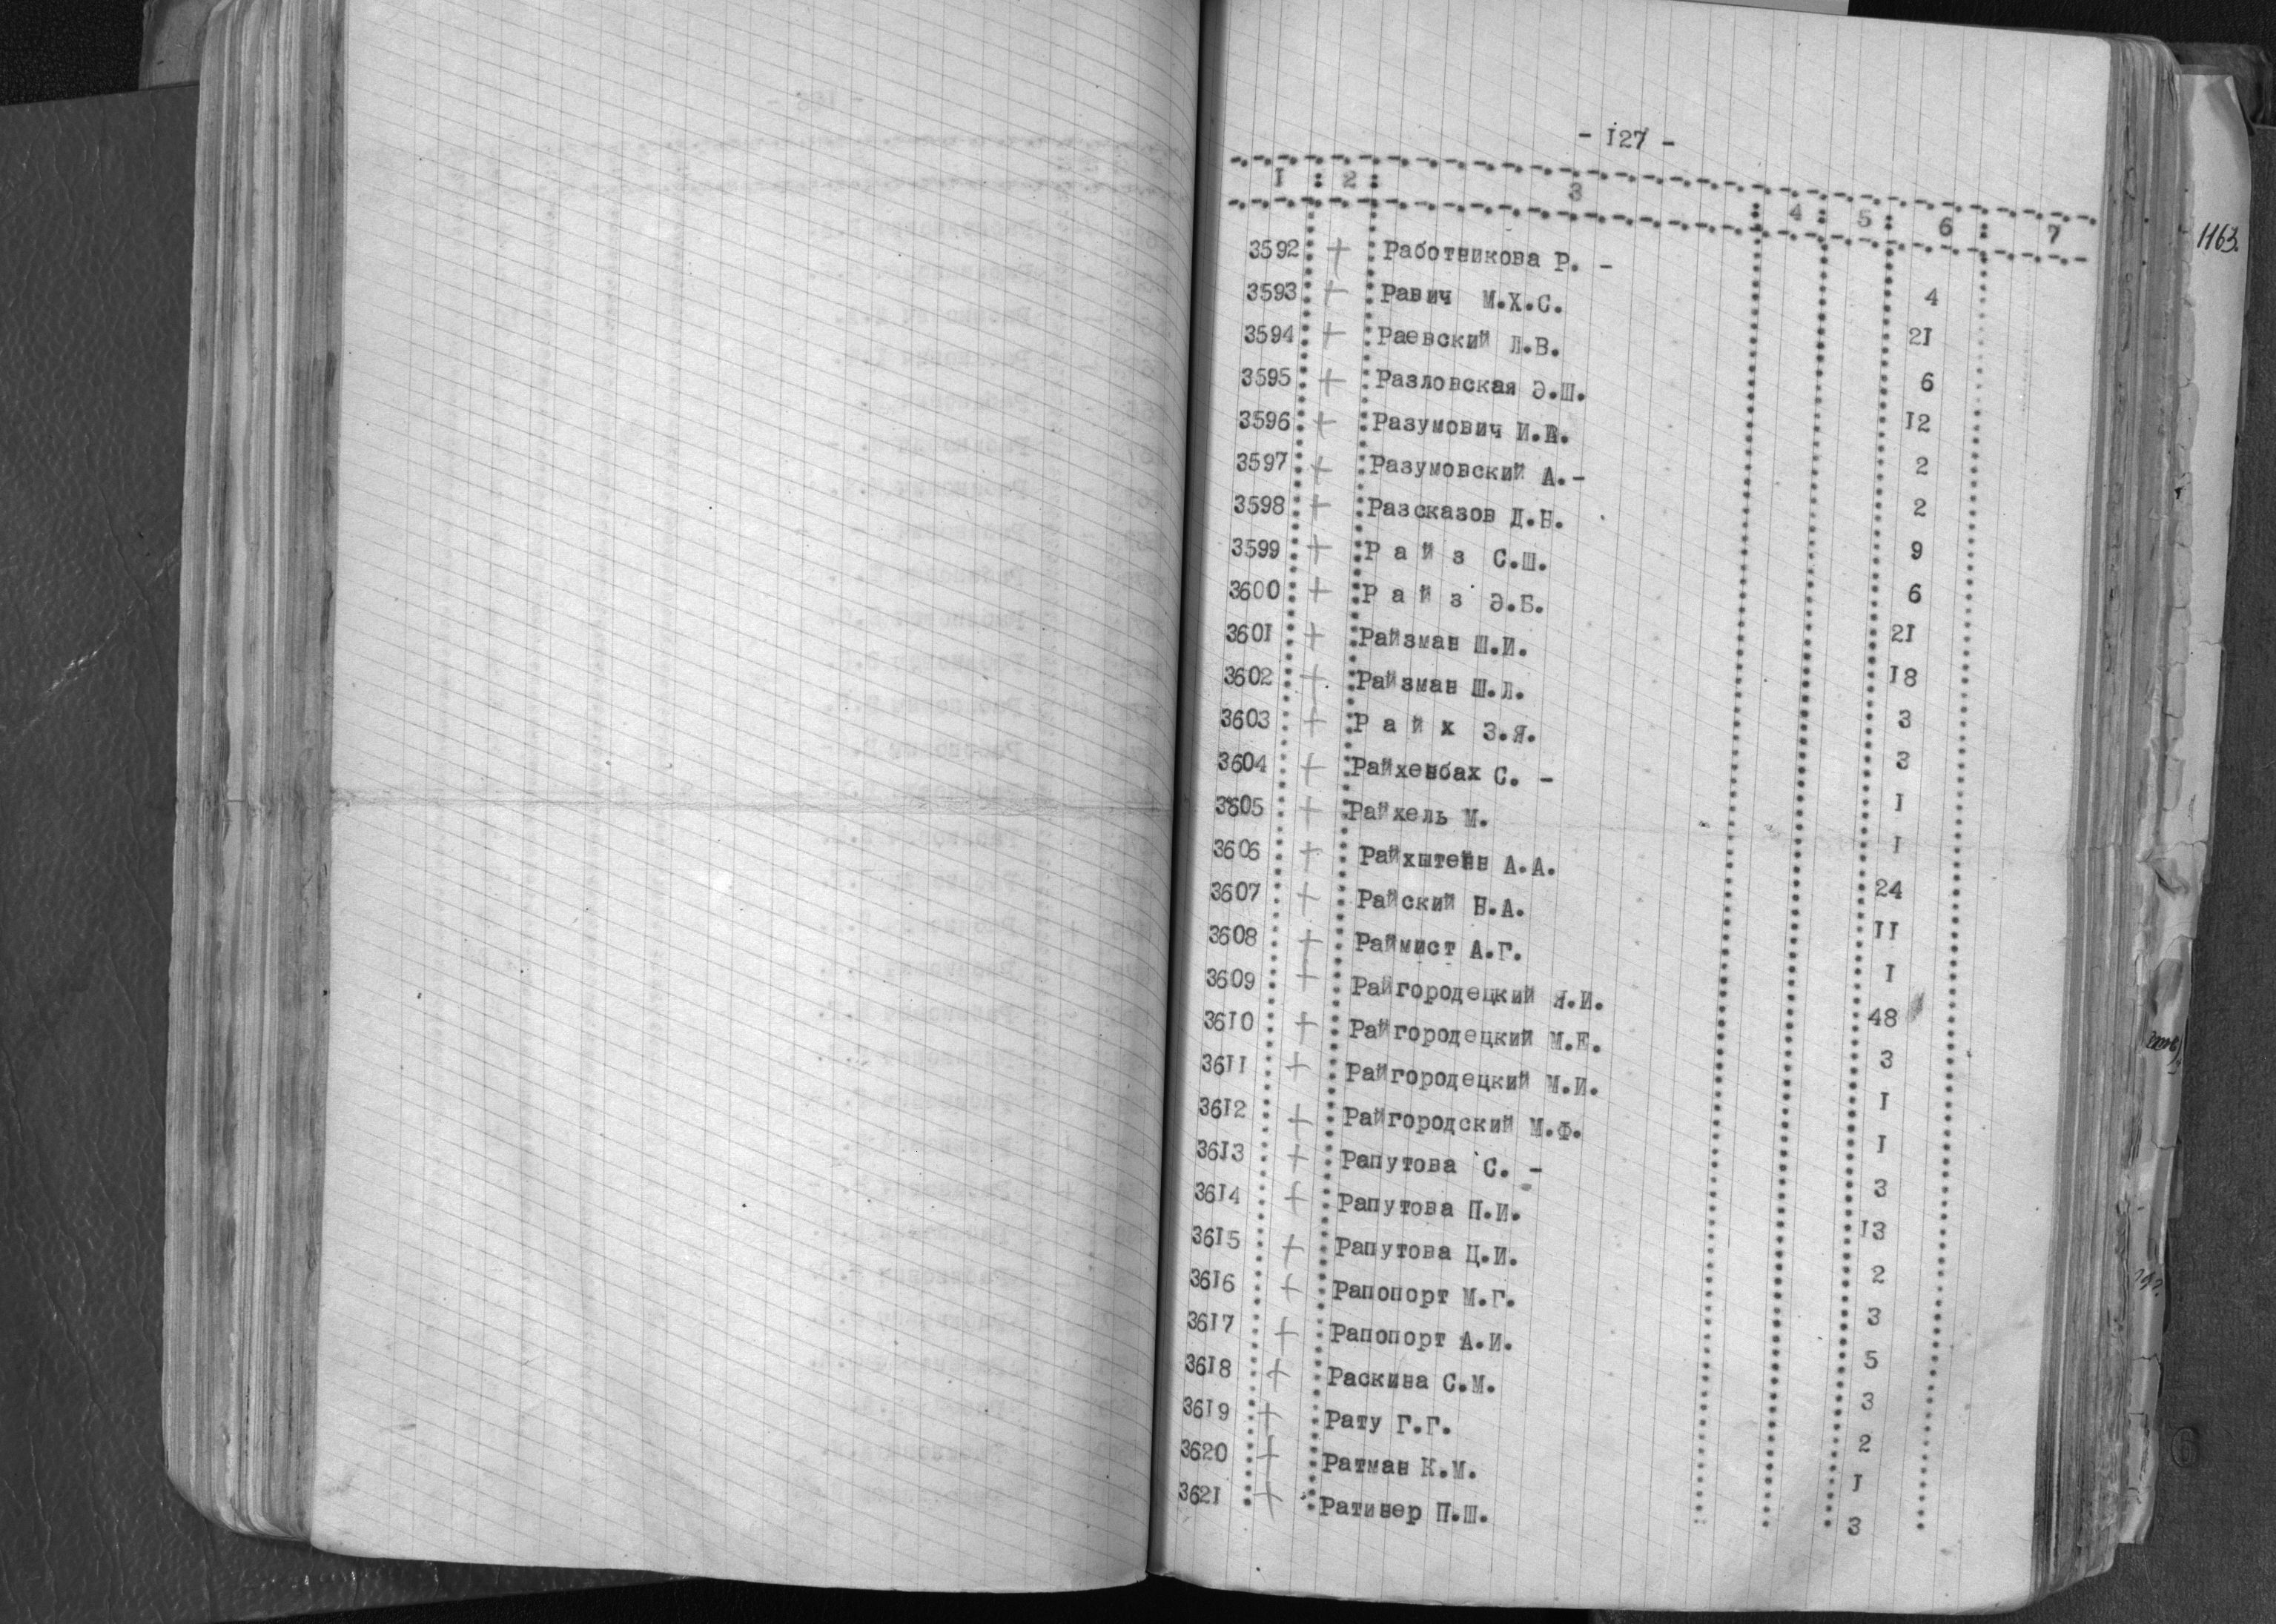 - I27 -
I : 2 : 3 : 4 : 5 : 6 : 7
1163.
3592 + Работникова Р. - 4
3593 + Равич М.Х.С. 2I
3594 + Раевский Л.В. 6
3595 + Разловская Э.Ш. I2
3596 + Разумович И.А. 2
3597 + Разумовский А.- 2
3598 + Разсказов Д.Н. 9
3599 + Р а й з С.Ш. 6
3600 + Р а й з Э.Б. 2I
360I + Райзман Ш.И. I8
3602 + Райзман Ш.Л. 3
3603 + Р а й х З.Я. 3
3604 + Райхенбах С. - I
3605 + Райхель М. I
3606 + Райхштейн А.А. 24
3607 + Райский Н.А. II
3608 + Раймист А.Г. I
3609 + Райгородецкий Я.И. 48
36I0 + Райгородецкий М.Е. 3
36II + Райгородецкий М.И. I
36I2 + Райгородский М.Ф. I
36I3 + Рапутова С. - 3
36I4 + Рапутова П.И. I3
36I5 + Рапутова Ц.И. 2
36I6 + Рапопорт М.Г. 3
36I7 + Рапопорт А.И. 5
36I8 + Раскина С.М. 3
36I9 + Рату Г.Г. 2
3620 + Ратман К.М. I
362I + Ратинер П.Ш. 3